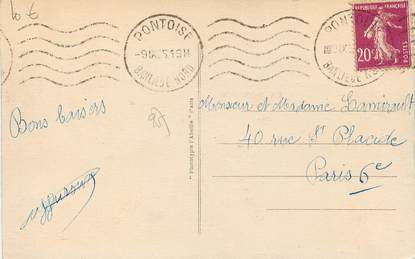 10 €
PONTOISE
BANLIEUE NORD
PONTOISE
BANLIEUE NORD
RÉPUBLIQUE FRANÇAISE
20c
POSTES
Bons baisers
"Phototypie l'Abeille" Paris
Monsieur et Madame Lamirault
40 rue St Placide
Paris 6e